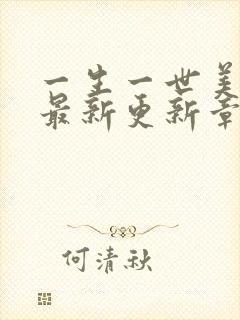 一生一世美
最新更新章
何清秋